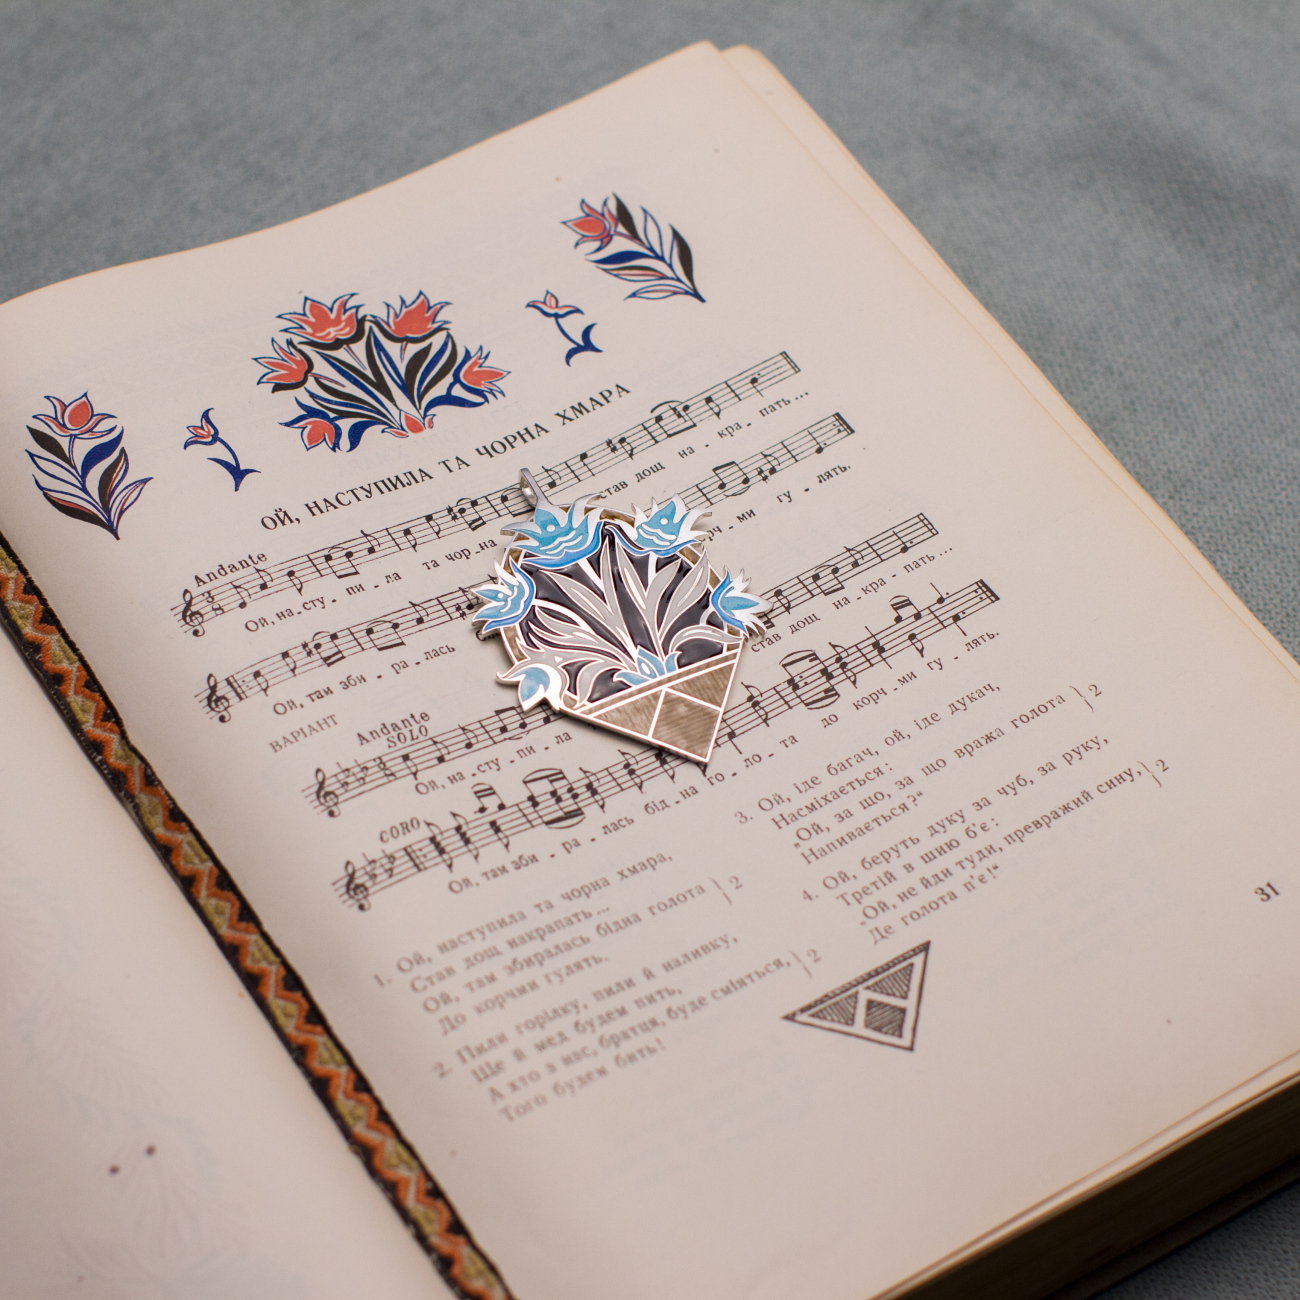 ОЙ, НАСТУПИЛА ТА ЧОРНА ХМАРА
Andante
Ой, на - сту - пи - ла та чор - на став дощ на - кра - пать...
Ой, там зби - ра - лась корч - ми гу - лять.
ВАРІАНТ
Andante
SOLO
Ой, на - сту - пи - ла став дощ на - кра - пать...
CORO
Ой, там зби - ра - лась бід - на го - ло - та до корч - ми гу - лять.
1. Ой, наступила та чорна хмара,
Став дощ накрапать...
Ой, там збиралась бідна голота } 2
До корчми гулять.
2. Пили горілку, пили й наливку,
Ще й мед будем пить,
А хто з нас, братця, буде сміяться, } 2
Того будем бить!
3. Ой, іде багач, ой, іде дукач,
Насміхається:
„Ой, за що, за що вража голота } 2
Напивається?“
4. Ой, беруть дуку за чуб, за руку,
Третій в шию б'є:
„Ой, не йди туди, превражий сину, } 2
Де голота п'є!“
31